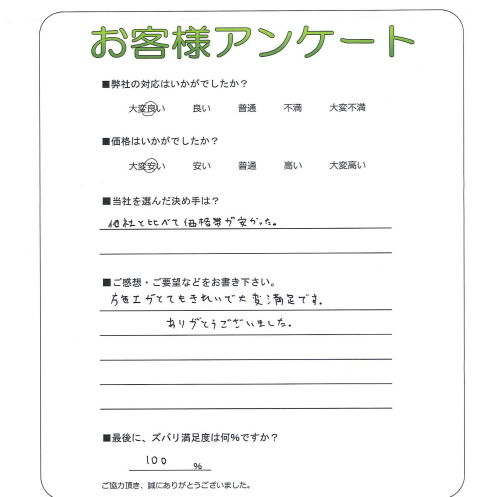 お客様アンケート
■弊社の対応はいかがでしたか？
大変良い 良い 普通 不満 大変不満
■価格はいかがでしたか？
大変安い 安い 普通 高い 大変高い
■当社を選んだ決め手は？
他社と比べて価格帯が安かった。
■ご感想・ご要望などをお書き下さい。
施工がとてもきれいで大変満足です。
ありがとうございました。
■最後に、ズバリ満足度は何%ですか？
100 %
ご協力頂き、誠にありがとうございました。